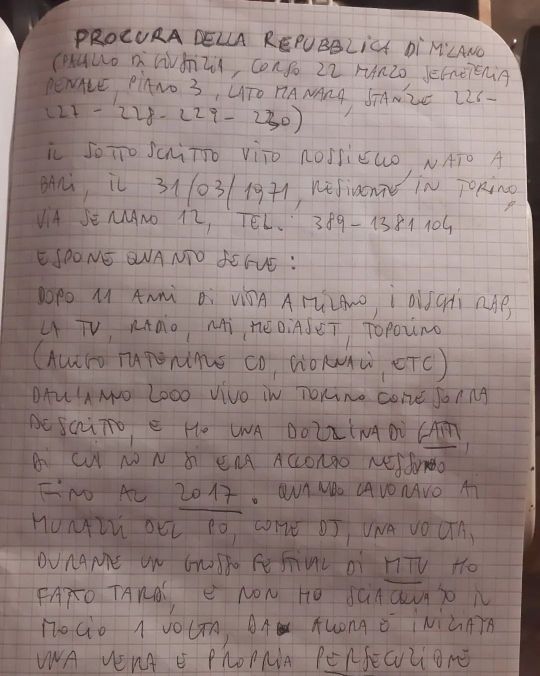 PROCURA DELLA REPUBBLICA DI MILANO
(PALAZZO DI GIUSTIZIA, CORSO 22 MARZO, SEGRETERIA
PENALE, PIANO 3, LATO MANARA, STANZE 226-
227-228-229-230)
IL SOTTOSCRITTO VITO ROSSIELLO, NATO A
BARI, IL 31/03/1971, RESIDENTE IN TORINO,
VIA SERRANO 12, TEL. 389-1381104
ESPONE QUANTO SEGUE:
DOPO 11 ANNI DI VITA A MILANO, I DISCHI RAP,
LA TV, RADIO, RAI, MEDIASET, TOPOLINO
(ALLEGO MATERIALE CD, GIORNALI, ETC)
DALL'ANNO 2000 VIVO IN TORINO COME SOPRA
DESCRITTO, E HO UNA DOZZINA DI GATTI,
DI CUI NON SI ERA ACCORTO NESSUNO
FINO AL 2017. QUANDO LAVORAVO AI
MURAZZI DEL PO, COME DJ, UNA VOLTA,
DURANTE UN GROSSO FESTIVAL DI MTV HO
FATTO TARDI, E NON HO SCIACQUATO IL
MOCIO 1 VOLTA, DA ALLORA È INIZIATA
UNA VERA E PROPRIA PERSECUZIONE